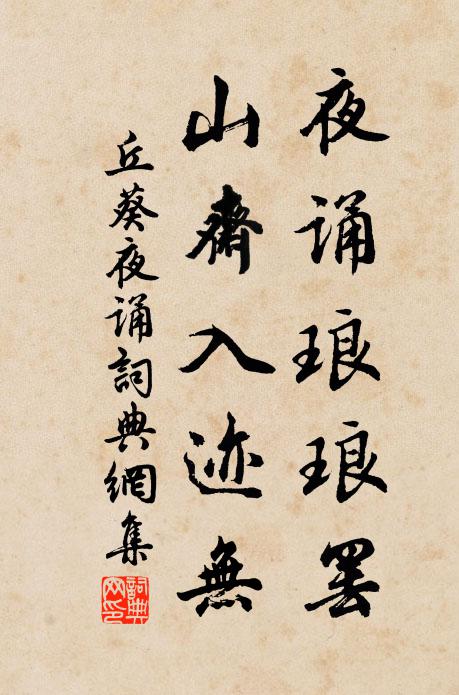 夜诵琅琅罢
山齋入迹無
丘葵夜诵詞典網集
詞典
网印